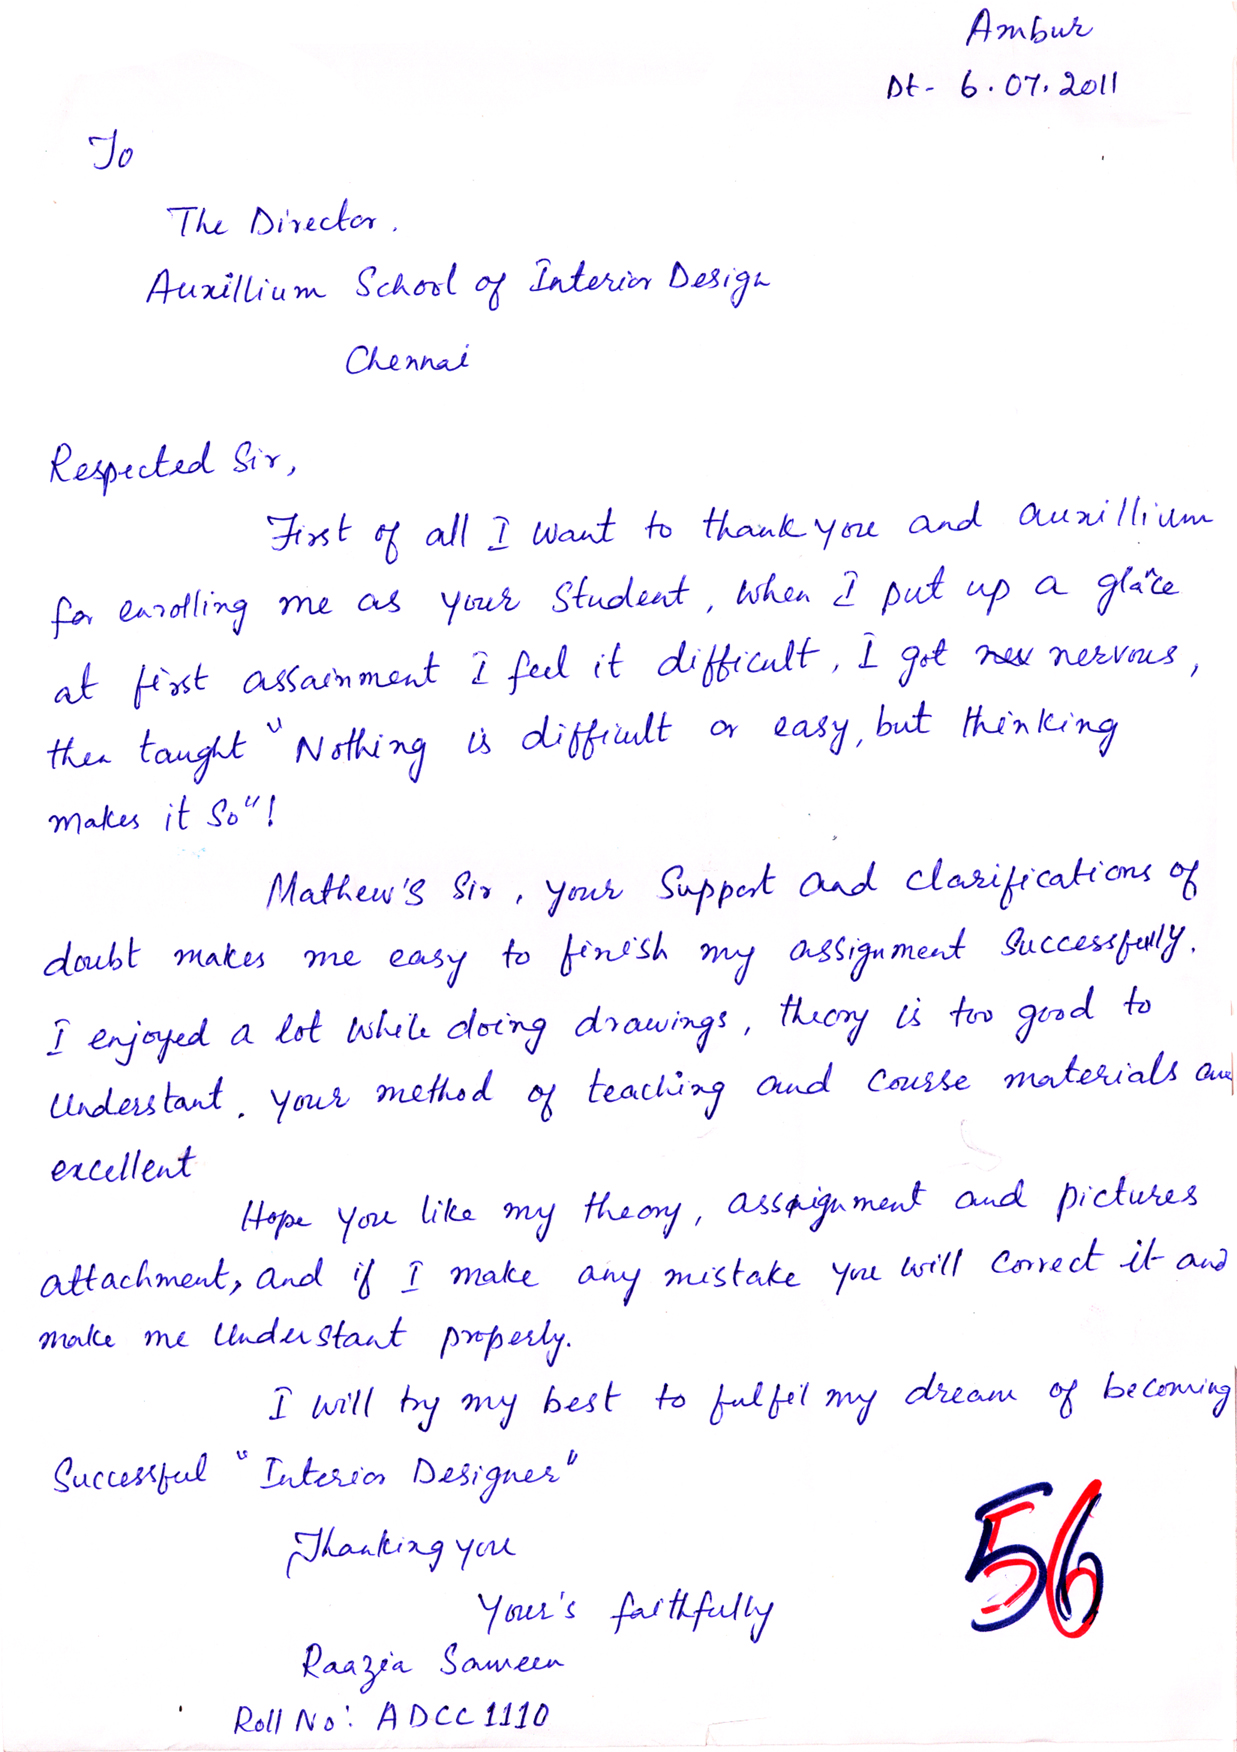 Ambur
Dt- 6.07.2011
To
The Director.
Auxillium School of Interior Design
Chennai
Respected Sir,
First of all I want to thank you and auxillium
for enrolling me as your Student, when I put up a glance
at first assainment I feel it difficult, I got nervous,
then taught "Nothing is difficult or easy, but thinking
makes it so"!
Mathew's Sir, your Support and clarifications of
doubt makes me easy to finish my assignment Successfully.
I enjoyed a lot while doing drawings, theory is too good to
Understant. your method of teaching and course materials are
excellent
Hope you like my theory, assignment and pictures
attachment, and if I make any mistake you will correct it and
make me Understant properly.
I will try my best to fulfil my dream of becoming
Successful "Interior Designer"
Thanking you
Your's faithfully
Raazia Sameen
Roll No: ADCC1110
56